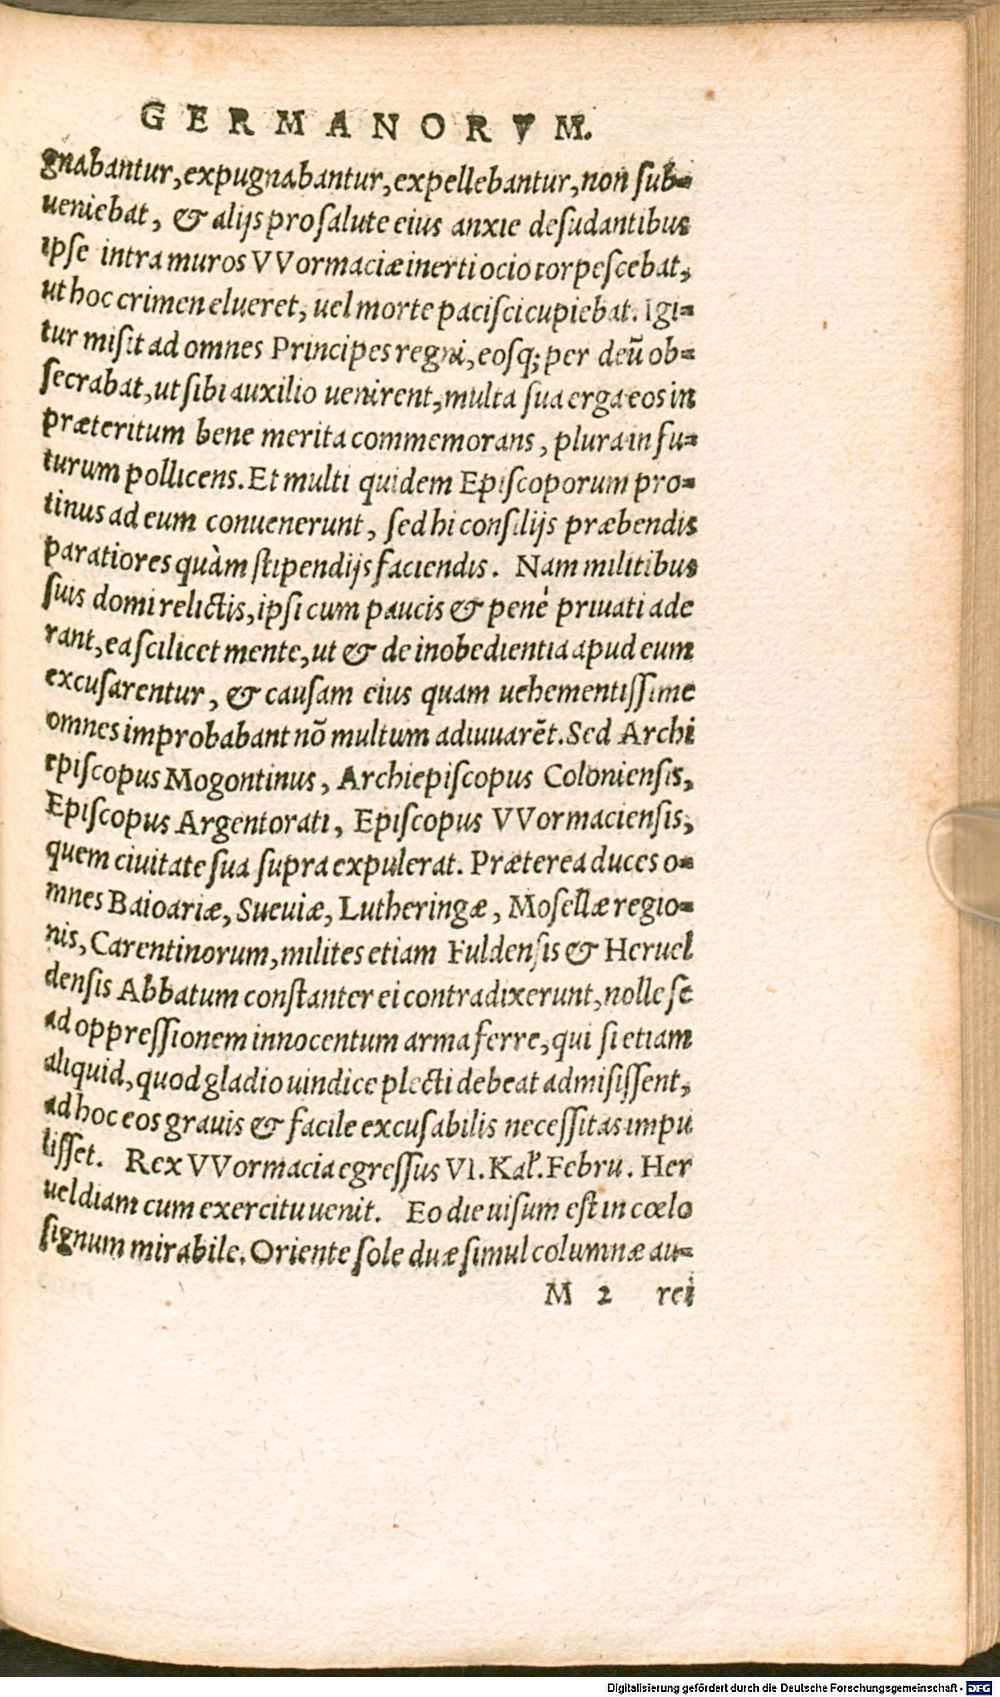 GERMANORVM.
gnabantur, expugnabantur, expellebantur, non sub-
ueniebat, & alijs pro salute eius anxie desudantibus
ipse intra muros VVormaciæ inerti ocio torpescebat,
ut hoc crimen elueret, uel morte pacisci cupiebat. Igi-
tur misit ad omnes Principes regni, eosq; per deũ ob-
secrabat, ut sibi auxilio uenirent, multa sua erga eos in
præteritum bene merita commemorans, plura in fu-
turum pollicens. Et multi quidem Episcoporum pro-
tinus ad eum conuenerunt, sed hi consilijs præbendis
paratiores quàm stipendijs faciendis. Nam militibus
suis domi relictis, ipsi cum paucis & penè priuati ade
rant, ea scilicet mente, ut & de inobedientia apud eum
excusarentur, & causam eius quam uehementissime
omnes improbabant nõ multum adiuuarẽt. Sed Archi
episcopus Mogontinus, Archiepiscopus Coloniensis,
Episcopus Argentorati, Episcopus VVormaciensis,
quem ciuitate sua supra expulerat. Præterea duces o-
mnes Baioariæ, Sueuiæ, Lutheringæ, Mosellæ regio-
nis, Carentinorum, milites etiam Fuldensis & Heruel
densis Abbatum constanter ei contradixerunt, nolle se
ad oppressionem innocentum arma ferre, qui si etiam
aliquid, quod gladio uindice plecti debeat admisissent,
ad hoc eos grauis & facile excusabilis necessitas impu
lisset. Rex VVormacia egressus VI. Kal. Febru. Her
ueldiam cum exercitu uenit. Eo die uisum est in cœlo
signum mirabile. Oriente sole duæ simul columnæ au-
M 2 rei
Digitalisierung gefördert durch die Deutsche Forschungsgemeinschaft - DFG